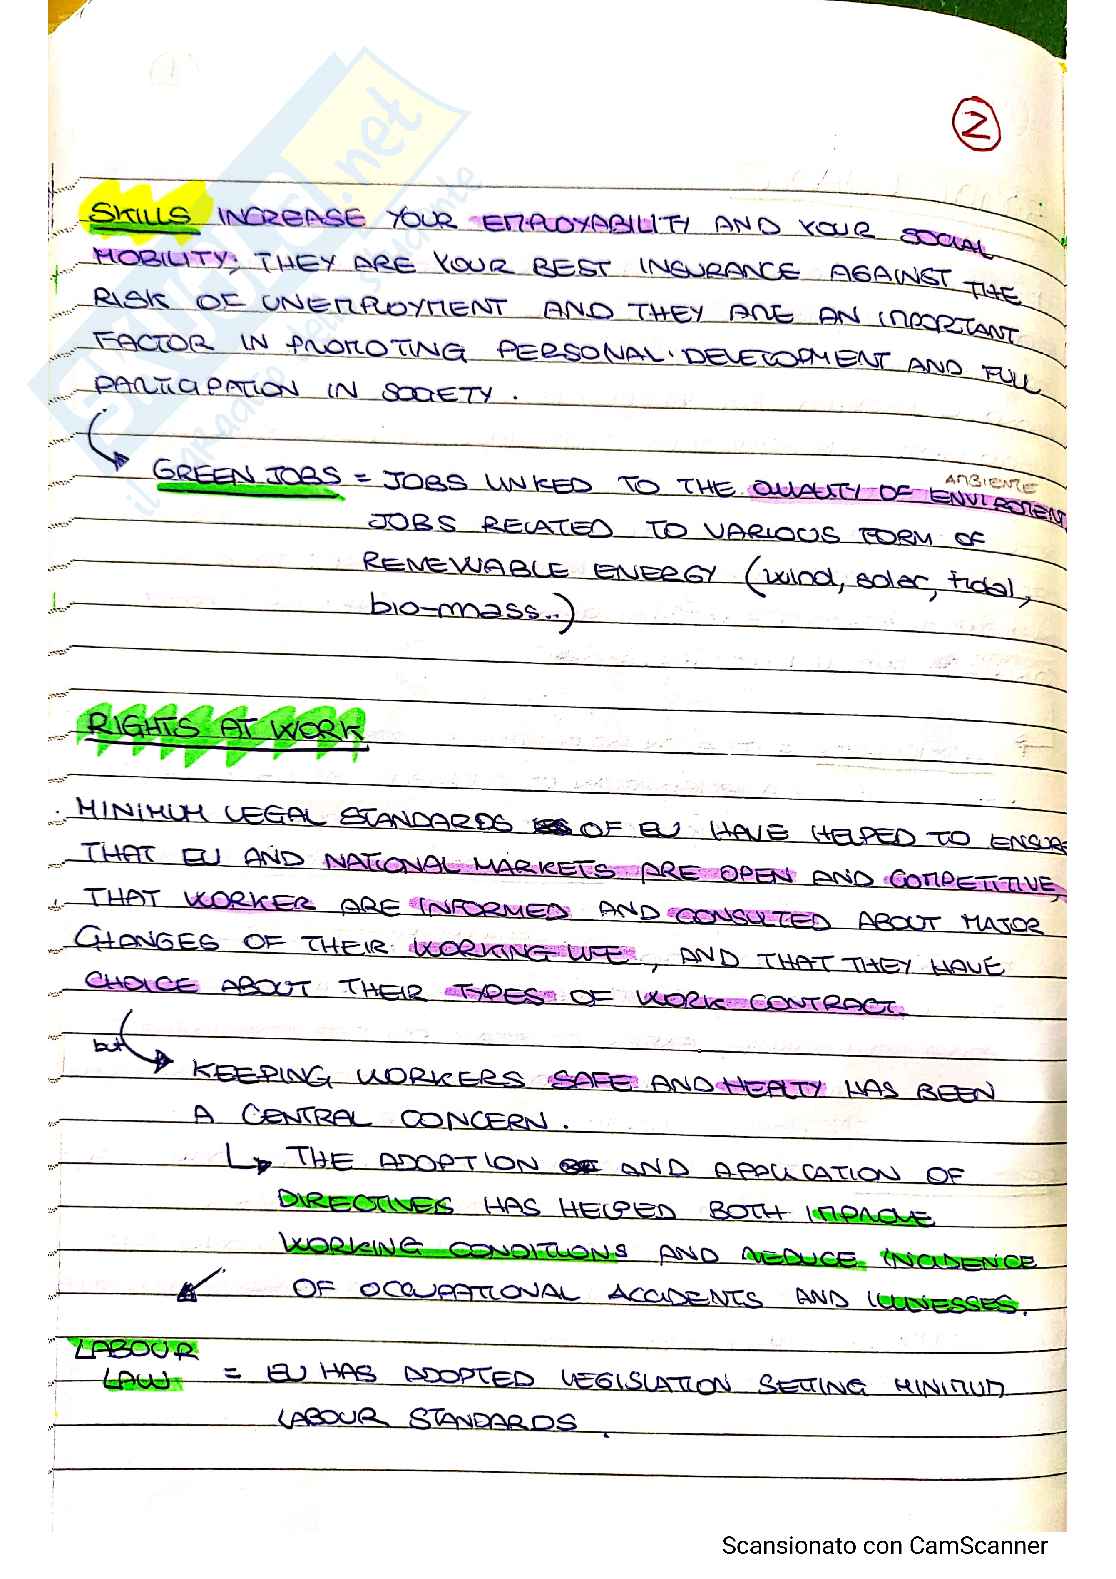 2
SKILLS INCREASE YOUR EMPLOYABILITY AND YOUR SOCIAL
MOBILITY; THEY ARE YOUR BEST INSURANCE AGAINST THE
RISK OF UNEMPLOYMENT AND THEY ARE AN IMPORTANT
FACTOR IN PROMOTING PERSONAL DEVELOPMENT AND FULL
PARTICIPATION IN SOCIETY.
AMBIENTE
GREEN JOBS = JOBS LINKED TO THE QUALITY OF
JOBS RELATED TO VARIOUS FORM OF
RENEWABLE ENERGY (wind, solar, tidal,
bio-mass..)
RIGHTS AT WORK
MINIMUM LEGAL STANDARDS OF EU HAVE HELPED TO ENSURE
THAT EU AND NATIONAL MARKETS ARE OPEN AND COMPETITIVE,
THAT WORKER ARE INFORMED AND CONSULTED ABOUT MAJOR
CHANGES OF THEIR WORKING LIFE, AND THAT THEY HAVE
CHOICE ABOUT THEIR TYPES OF WORK CONTRACT.
but
KEEPING WORKERS SAFE AND HEALTY HAS BEEN
A CENTRAL CONCERN.
THE ADOPTION AND APPLICATION OF
DIRECTIVES HAS HELPED BOTH IMPROVE
WORKING CONDITIONS AND REDUCE INCIDENCE
OF OCCUPATIONAL ACCIDENTS AND ILLNESSES.
LABOUR
LAW = EU HAS ADOPTED LEGISLATION SETTING MINIMUM
LABOUR STANDARDS.
Scansionato con CamScanner